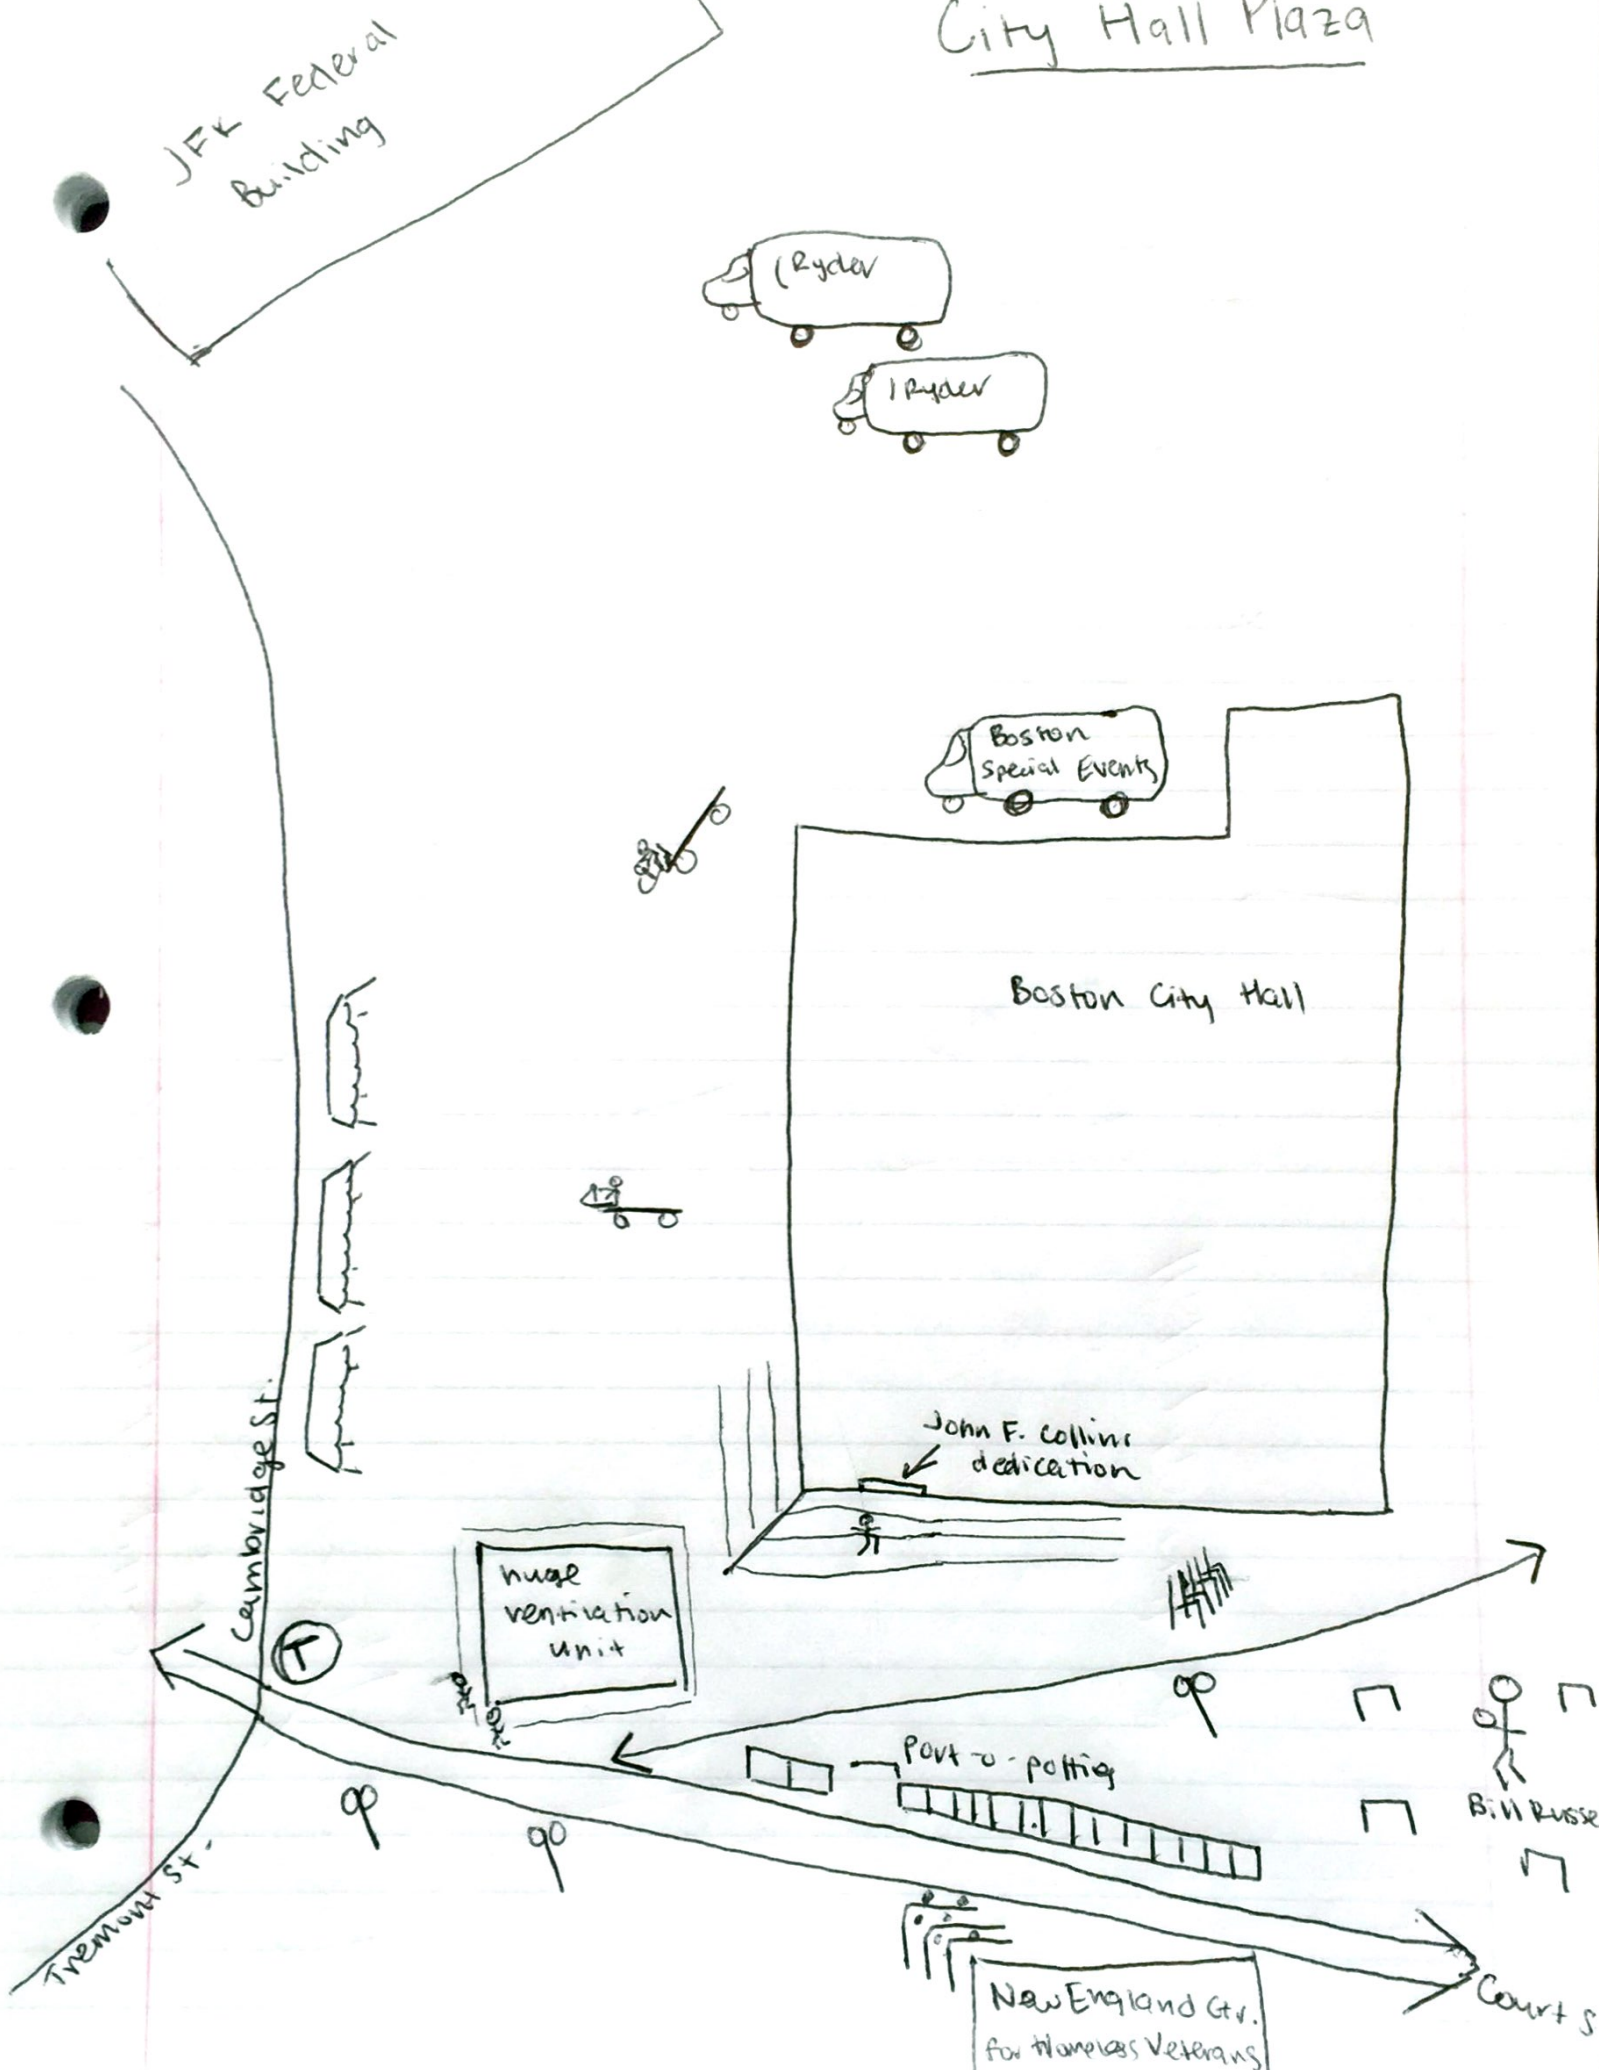 City Hall Plaza
JFK Federal
Building
Ryder
Ryder
Boston
Special Events
Boston City Hall
John F. Collins
dedication
Cambridge St.
huge
ventilation
unit
T
Port-o-potties
Bill Russe
Tremont St.
Court S
New England Ctr.
for Homeless Veterans